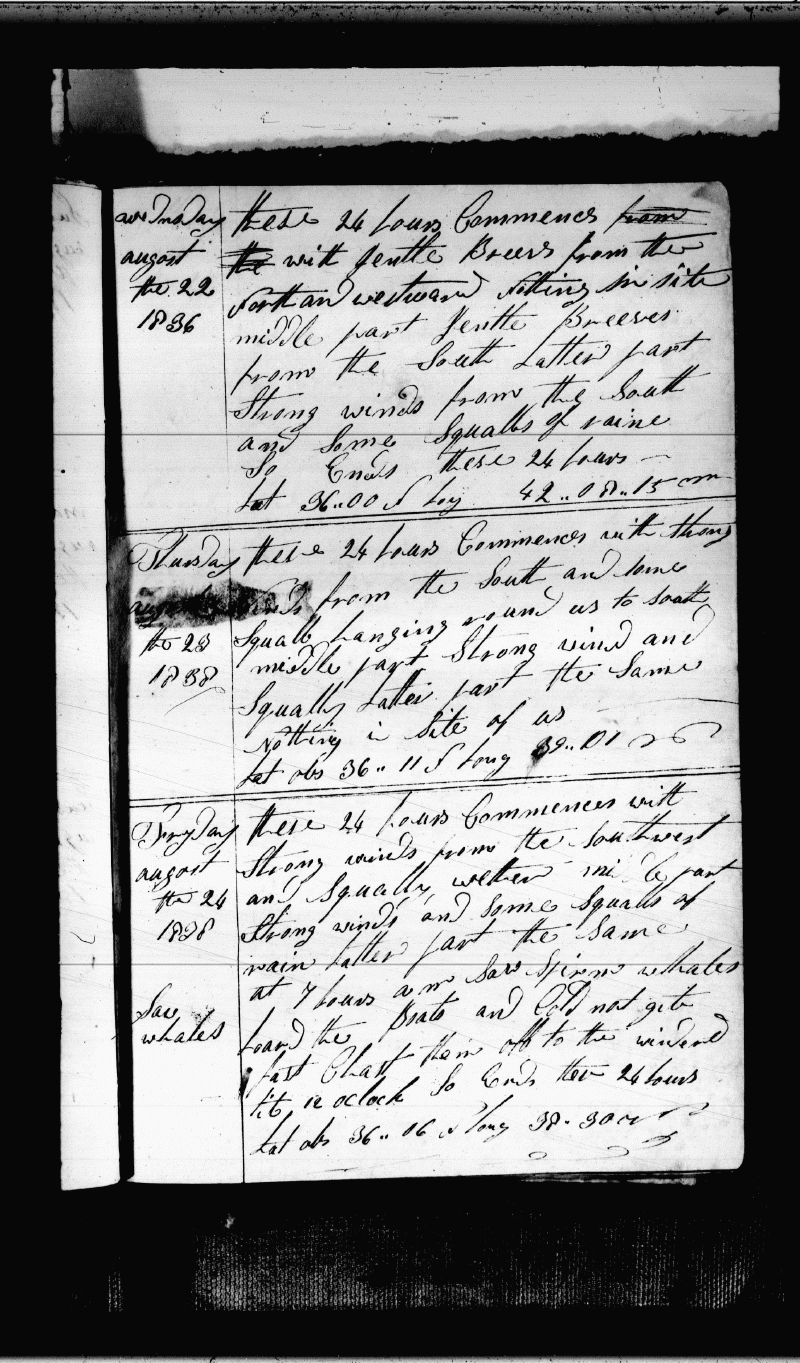 Wednsday
august
the 22
1836
these 24 hours Commences from
the with Jentle Breeses from the
North and westward Nothing in site
middle part Jentle Breeses
from the South Latter part
Strong winds from the South
and Some Squalls of raine
So Ends these 24 hours
Lat 36..00 N Log 42..08..15
Thursday
august
the 23
1838
these 24 hours Commences with strong
winds from the South and some
Squalls hanging round us to South
middle part Strong wind and
Squally Latter part the Same
Nothing in Site of us
Lat obs 36..11 N Long 39..01
Fryday
august
the 24
1838
Saw
whales
these 24 hours Commences with
Strong winds from the Southwest
and Squally wether middle part
Strong winds and some Squalls of
rain Latter part the Same
at 7 hours am Saw Spirm whales
Loard the Boats and Cold not gete
fast Chast them off to the windard
til 12 oclock So Ends thes 24 hours
Lat obs 36..06 N long 38..30